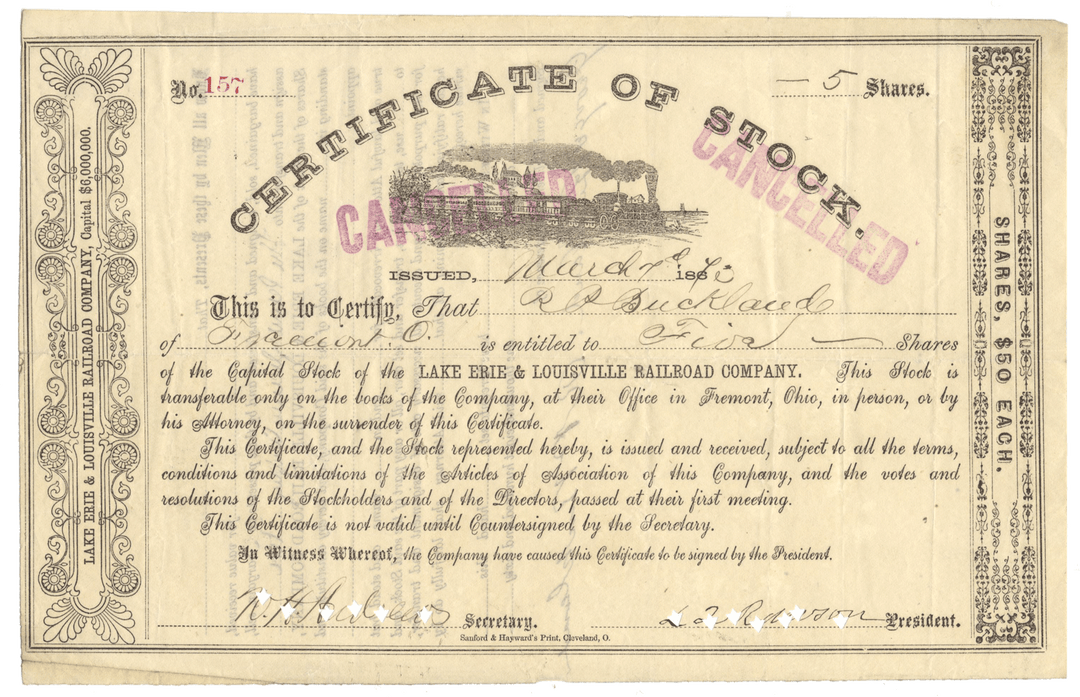 No. 157
— 5 Shares.
CERTIFICATE OF STOCK.
CANCELLED
CANCELLED
ISSUED, March 7th 1872
This is to Certify, That R P Buckland
of Fremont. O. is entitled to Five — Shares
of the Capital Stock of the LAKE ERIE & LOUISVILLE RAILROAD COMPANY. This Stock is
transferable only on the books of the Company, at their Office in Fremont, Ohio, in person, or by
his Attorney, on the surrender of this Certificate.
This Certificate, and the Stock represented hereby, is issued and received, subject to all the terms,
conditions and limitations of the Articles of Association of this Company, and the votes and
resolutions of the Stockholders and of the Directors, passed at their first meeting.
This Certificate is not valid until Countersigned by the Secretary.
In Witness Whereof, the Company have caused this Certificate to be signed by the President.
W. H. Andrews Secretary.
L Q Rawson President.
Sanford & Hayward's Print, Cleveland, O.
LAKE ERIE & LOUISVILLE RAILROAD COMPANY, Capital $6,000,000.
SHARES, $50 EACH.